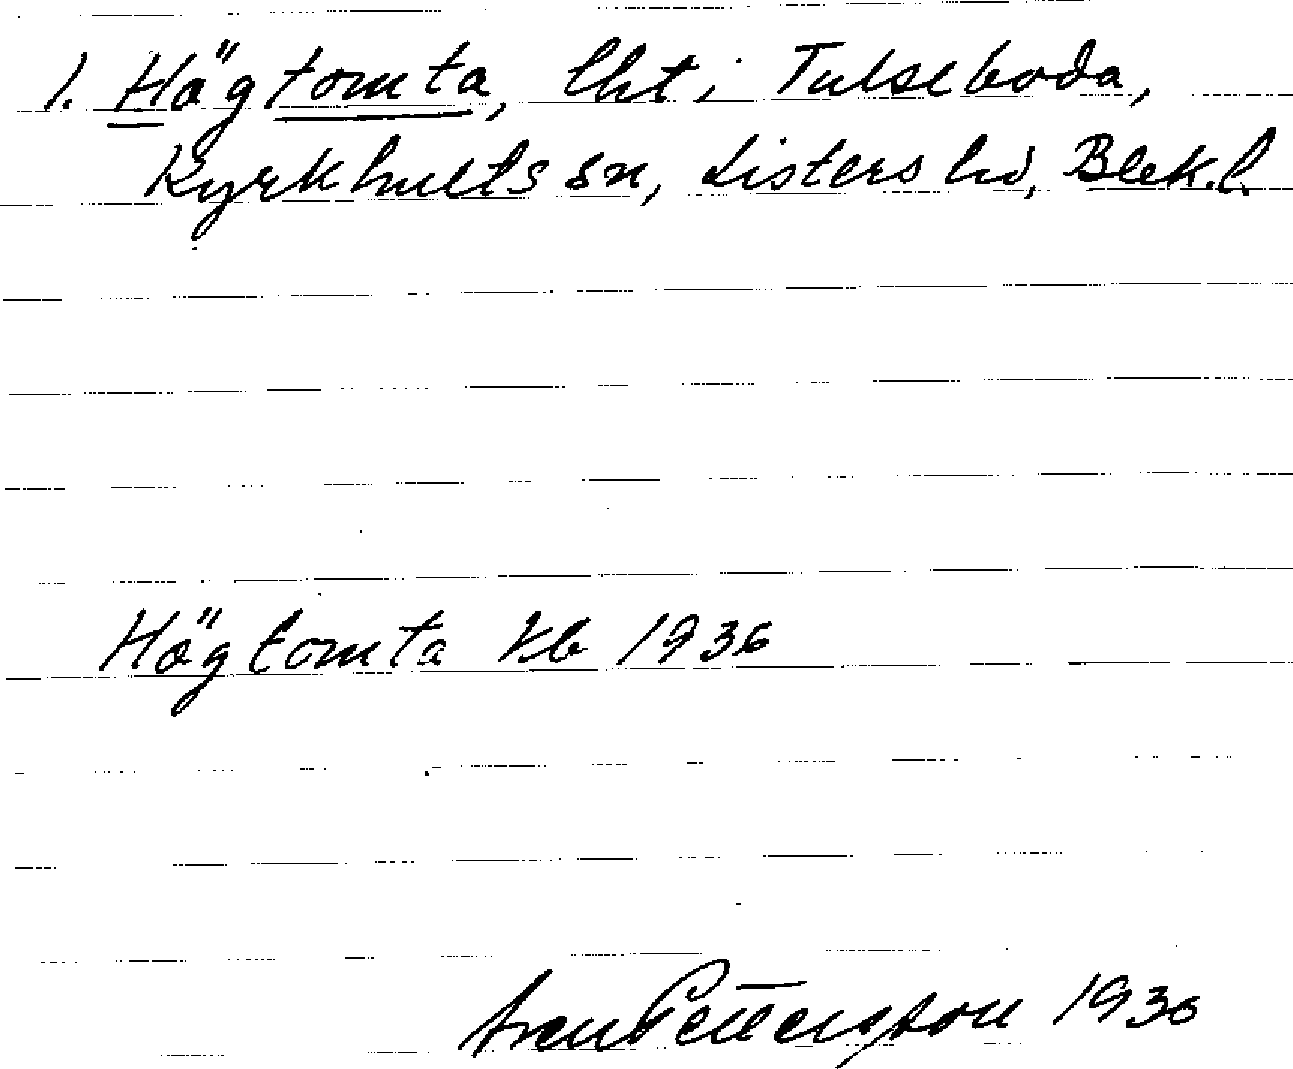 1. Högtomta, lht i Tulseboda,
Kyrkhults sn, Listers hd, Blek.l.
Högtomta kb 1936
Sven Pettersson 1936